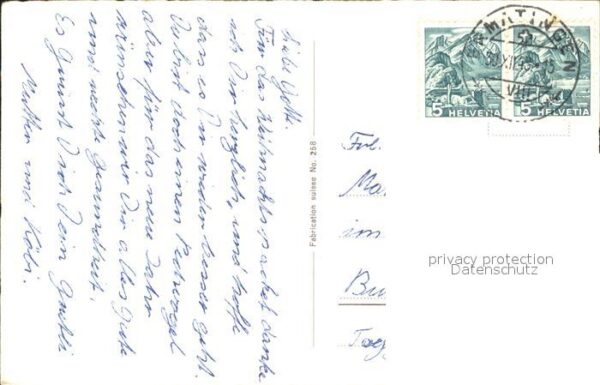 Liebe Gotti.
Für das Weihnachtspacket danke
ich Dir herzlich und hoffe
dass es Dir wieder besser geht.
Du bist doch einen Pechvogel
aber für das neue Jahr
wünschen wir Dir alles Gute
und recht gute Gesundheit.
Es grüsst Dich Dein
Mutter und Köbi.
Fabrication suisse No. 258
ERMATINGEN
5 HELVETIA
5 HELVETIA
Frl.
Ma
im
Bu
Täg
privacy protection
Datenschutz